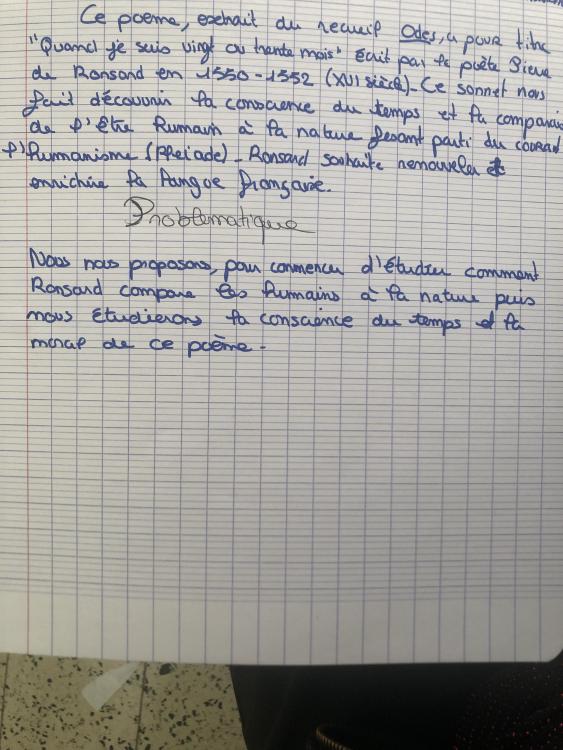 Ce poème, extrait du recueil Odes, a pour titre
"Quand je suis vingt ou trente mois" écrit par le poète Pierre
de Ronsard en 1550-1552 (XVI siècle). Ce sonnet nous
fait découvrir la conscience du temps et la comparais
de l'être humain à la nature fesant parti du courant
l'humanisme (Pleiade). Ronsard souhaite renouveler et
enrichire la langue française.
Problematique
Nous nous proposons, pour commencer d'étudier comment
Ronsard compare les humains à la nature puis
nous étudierons la conscience du temps et la
moral de ce poème.